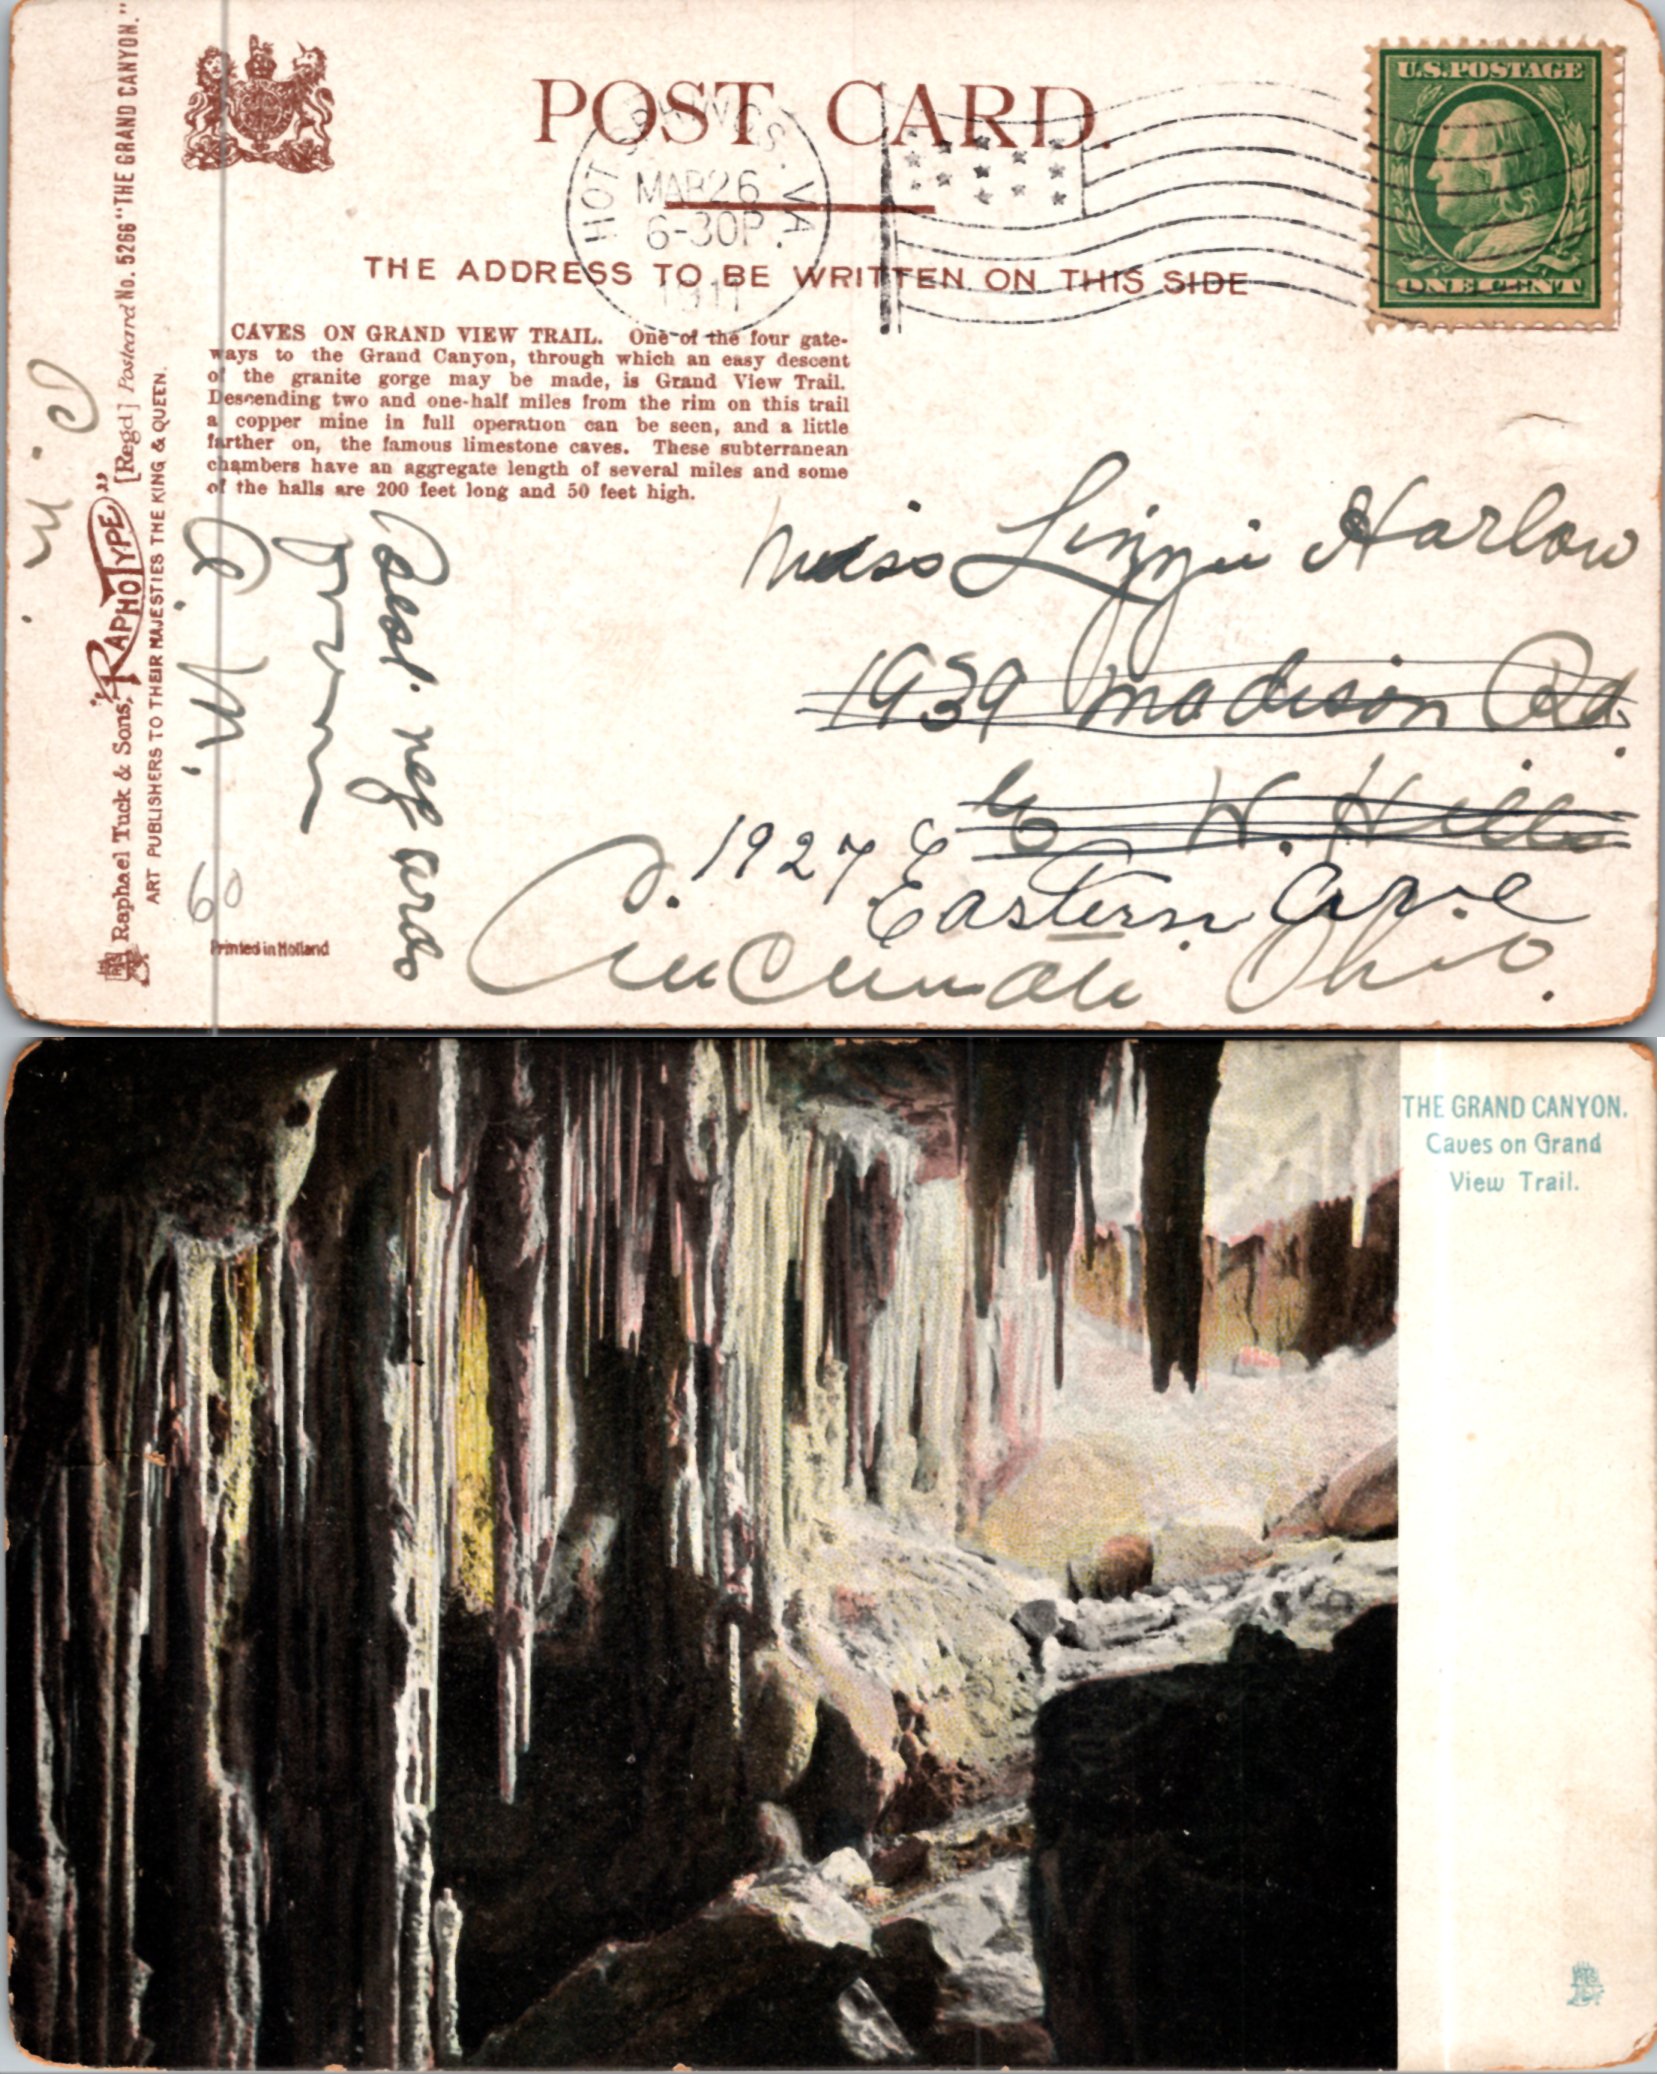 POST CARD.
THE ADDRESS TO BE WRITTEN ON THIS SIDE
HOT SPRINGS. VA.
MAR 26
6-30P
1911
U.S.POSTAGE
ONE CENT
CAVES ON GRAND VIEW TRAIL. One of the four gate-
ways to the Grand Canyon, through which an easy descent
of the granite gorge may be made, is Grand View Trail.
Descending two and one-half miles from the rim on this trail
a copper mine in full operation can be seen, and a little
farther on, the famous limestone caves. These subterranean
chambers have an aggregate length of several miles and some
of the halls are 200 feet long and 50 feet high.
Raphael Tuck & Sons' "RAPHOTYPE" [Regd] Postcard No. 5266 "THE GRAND CANYON."
ART PUBLISHERS TO THEIR MAJESTIES THE KING & QUEEN.
Printed in Holland
Miss Lizzie Harlow
1939 Madison Rd.
W. Hills
1927
Eastern Ave
Cincinnati Ohio.
Best regards
from
60
THE GRAND CANYON.
Caves on Grand
View Trail.